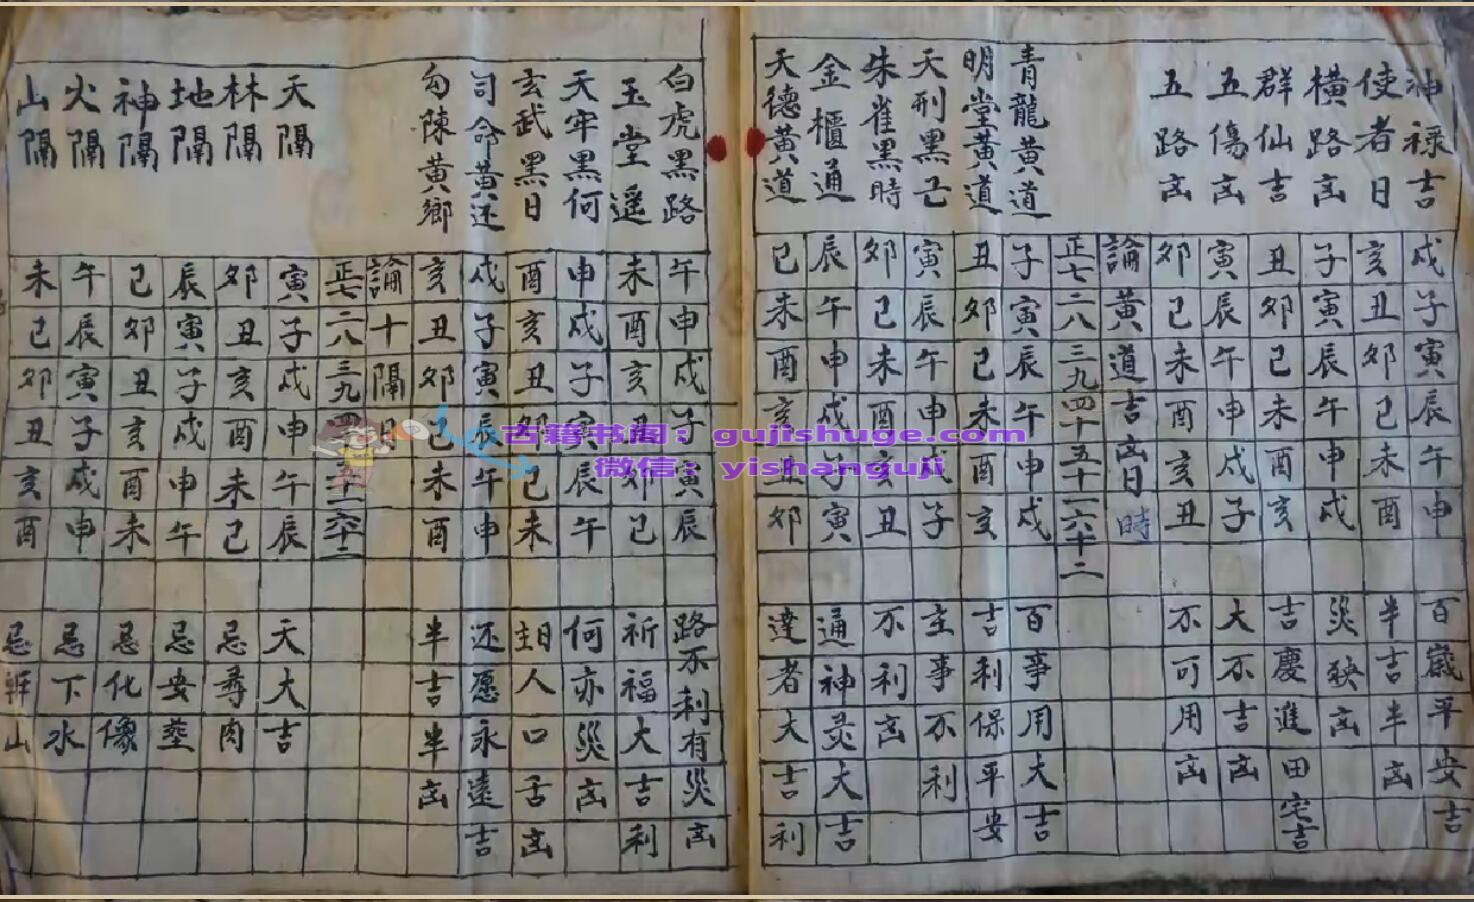 神禄吉 戌子寅辰午申 百歲平安吉
使者日 亥丑卯巳未酉 半吉半凶
橫路凶 子寅辰午申戌 災殃凶
群仙吉 丑卯巳未酉亥 吉慶進田宅吉
五傷凶 寅辰午申戌子 大不吉凶
五路凶 卯巳未酉亥丑 不可用凶
論黃道吉凶日時
正七二八三九四十五十一六十二
青龍黃道 子寅辰午申戌 百事用大吉
明堂黃道 丑卯巳未酉亥 吉利保平安
天刑黑亡 寅辰午申戌子 主事不利
朱雀黑時 卯巳未酉亥丑 不利凶
金櫃通 辰午申戌子寅 通神灵大吉
天德黃道 巳未酉亥丑卯 達者大吉利
白虎黑路 午申戌子寅辰 路不利有災凶
玉堂遥 未酉亥丑卯巳 祈福大吉利
天牢黑何 申戌子寅辰午 何亦災凶
玄武黑日 酉亥丑卯巳未 人口舌凶
司命黃还 戌子寅辰午申 还愿永遠吉
勾陳黃鄉 亥丑卯巳未酉 半吉半凶
論十隔日
正七二八三九四十五十一六十二
天隔 寅子戌申午辰 天大吉
林隔 卯丑亥酉未巳 忌尋肉
地隔 辰寅子戌申午 忌安塟
神隔 巳卯丑亥酉未 忌化像
火隔 午辰寅子戌申 忌下水
山隔 未巳卯丑亥酉 忌山
古籍书阁：gujishuge.com
微信：yishanguji